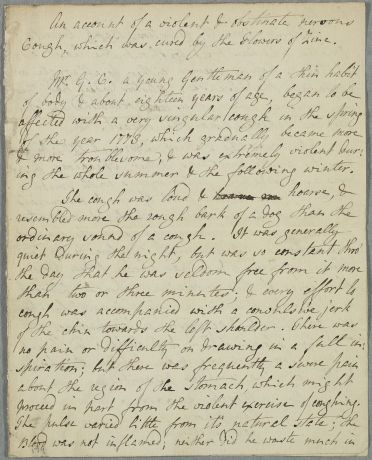 An account of a violent & obstinate nervous
Cough, which was cured by the Flowers of Zinc.
Mr. G. C. a young Gentleman of a thin habit
of body, & about eighteen years of age, began to be
affected with a very singular cough in the spring
of the year 1778, which gradually became more
& more troublesome, & was extremely violent dur-
ing the whole summer & the following winter.
The cough was loud & hoarse, &
resembled more the rough bark of a dog than the
ordinary sound of a cough. It was generally
quiet during the night, but was so constant thro
the day that he was seldom free from it more
than two or three minutes; & every effort to
cough was accompanied with a convulsive jerk
of the chin towards the left shoulder. There was
no pain or difficulty on drawing in a full in-
spiration; but there was frequently a sore pain
about the region of the Stomach which might
proceed in part from the violent exercise of coughing.
The pulse varied little from its natural state; the
Blood was not inflamed; neither did he waste much in